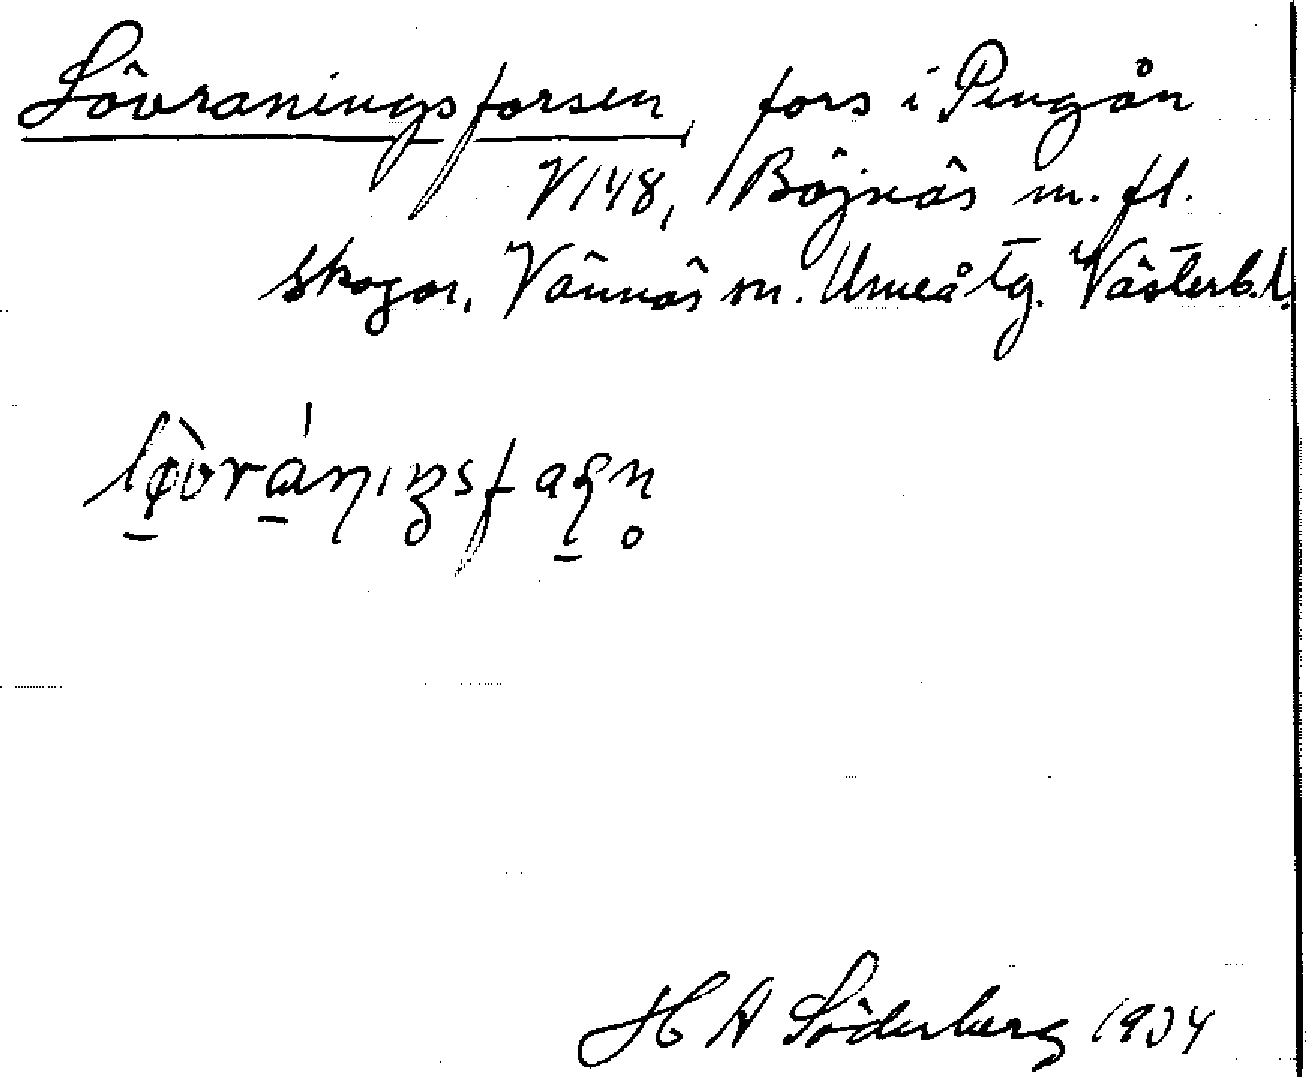 Lövraningsforsen, fors i Pengån
V148, Böjnäs m. fl.
skogar, Vännäs sn. Umeå tg. Västerb. l.
H A Söderberg 1934